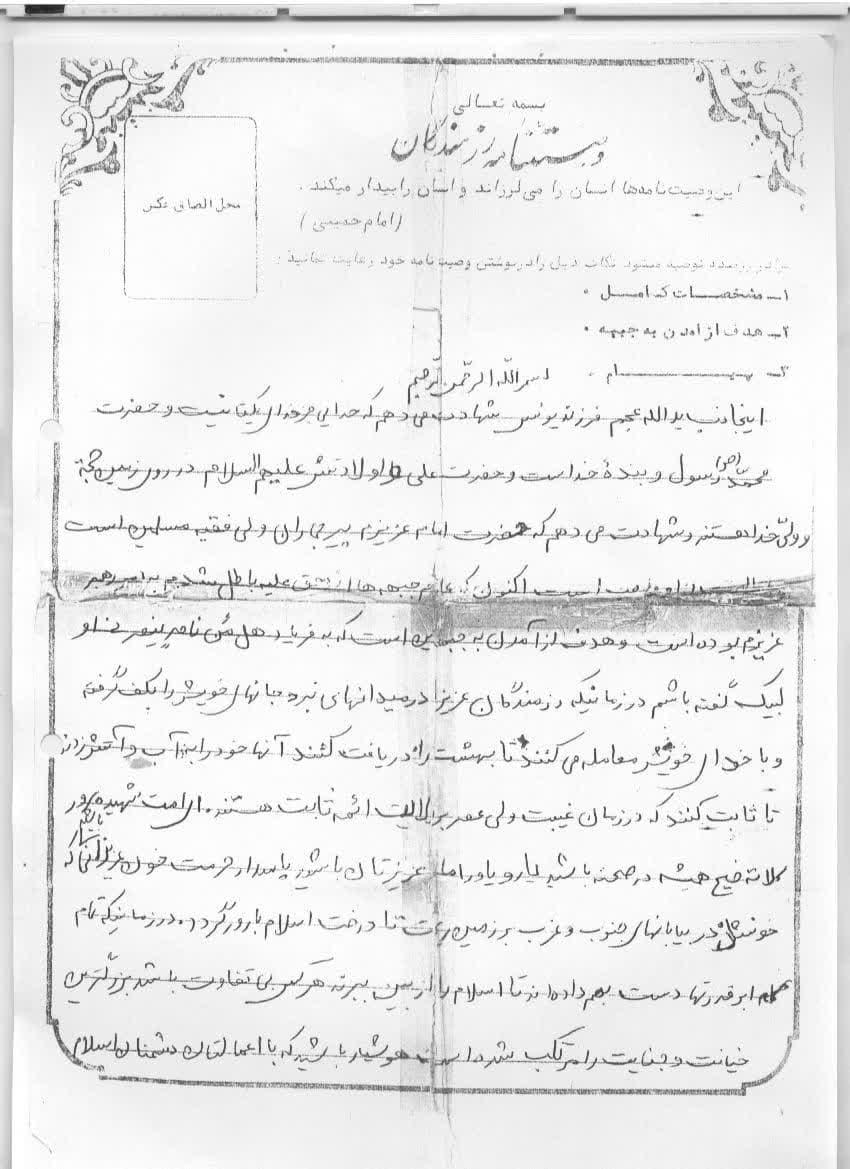 بسمه تعالی
وصیتنامه رزمندگان
این وصیت نامه‌ها انسان را می‌لرزاند و انسان را بیدار میکند .
(امام خمینی)
محل الصاق عکس
برادر رزمنده توصیه میشود نکات ذیل را در نوشتن وصیت نامه خود رعایت نمائید :
۱ــ مشخصــات کـامــل .
۲ــ هدف از آمدن به جبهه .
۳ــ پیــــام .
بسم الله الرحمن الرحیم
اینجانب یدالله عجم فرزند یونس شهادت می دهم که خدایی جز خدای یکتا نیست و حضرت
محمد (ص) رسول و بندهٔ خداست و حضرت علی و اولادش علیهم السلام در روی زمین حجة
و ولی خدا هستند و شهادت می دهم که حضرت امام عزیزم پیر جماران ولی فقیه مسلمین است
است اکنون که عازم جبهه ها حق علیه باطل شدم به امر رهبر
عزیزم بوده است و هدف از آمدن به جبهه این است که به فریاد هل من ناصر ینصرنی او
لبیک گفته باشم در زمانیکه رزمندگان عزیز در میدانهای نبرد جانهای خویش را بکف گرفته
و با خدای خویش معامله می کنند تا بهشت را دریافت کنند آنها خود را به آب و آتش زدند
تا ثابت کنند که در زمان غیبت ولی عصر بر ولایت ائمه ثابت هستند. ای امت شهید پرور
همیشه در صحنه باشید یار و یاور امام عزیزتان باشید پاسدار حرمت خون عزیزانی که
خونشان در بیابانهای جنوب و غرب بر زمین ریخت تا درخت اسلام بارور گردد. در زمانیکه تمام
ابر قدرتها دست بهم داده اند تا اسلام را از بین ببرند هر کس بی تفاوت باشد بزرگترین
خیانت و جنایت را مرتکب شده است هوشیار باشید که با اعمالتان دشمنان اسلام